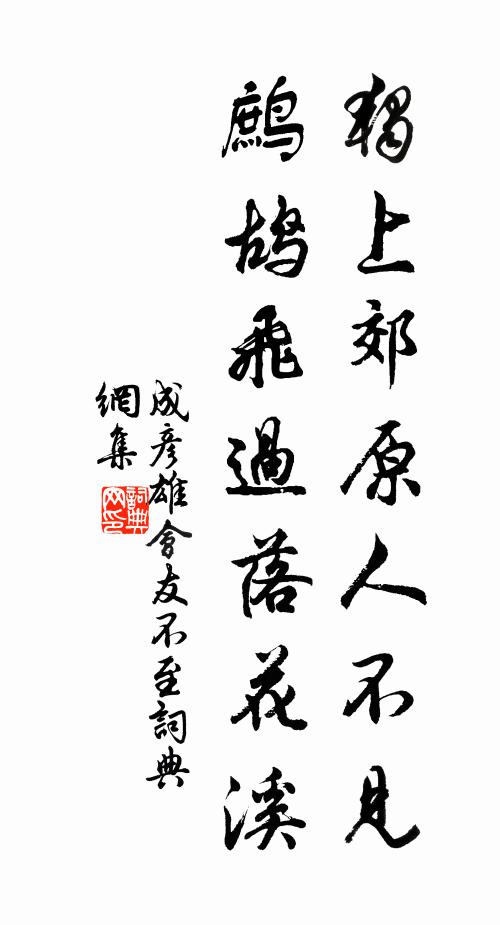 獨上郊原人不見
鷓鴣飛過落花溪
成彥雄會友不至詞典
網集
詞典
网印